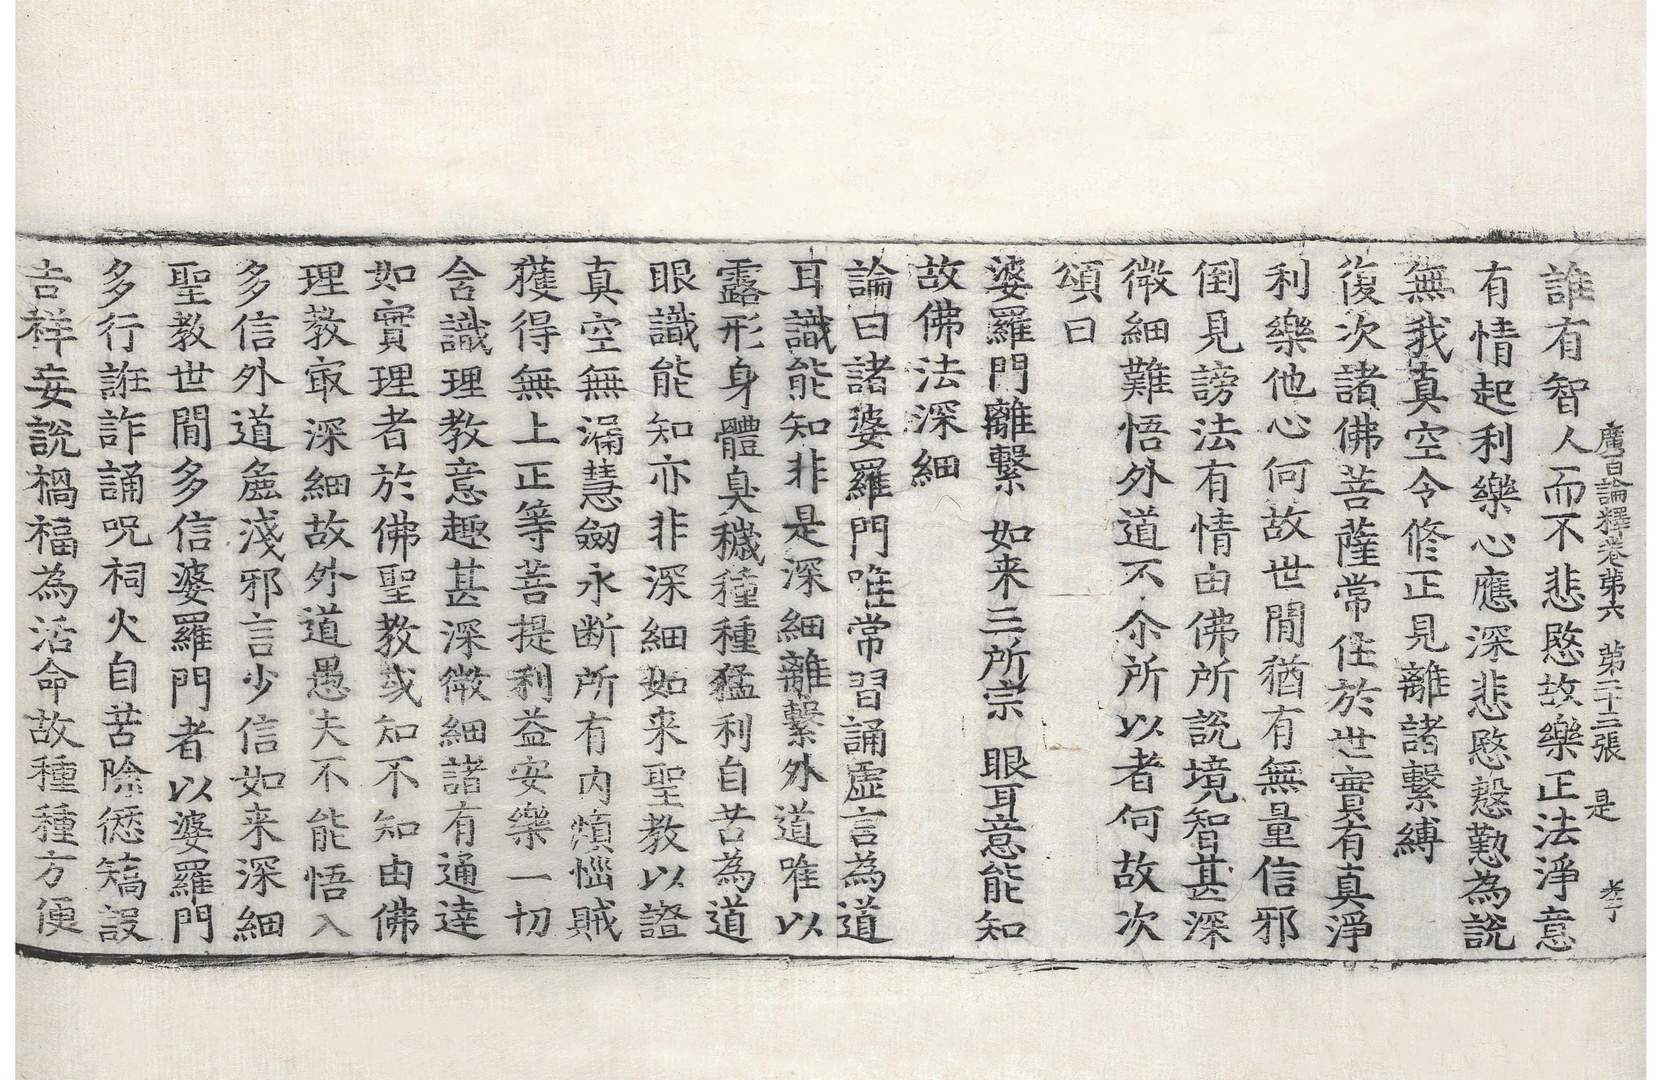 廣百論釋卷第六 第二十三張 是 孝丁
誰有智人而不悲愍故樂正法淨意
有情起利樂心應深悲愍慇懃為說
無我真空令修正見離諸繫縛
復次諸佛菩薩常住於世實有真淨
利樂他心何故世間猶有無量信邪
倒見謗法有情由佛所說境智甚深
微細難悟外道不尒所以者何故次
頌曰
婆羅門離繫 如来三所宗 眼耳意能知
故佛法深細
論曰諸婆羅門唯常習誦虛言為道
耳識能知非是深細離繫外道唯以
露形身體臭穢種種猛利自苦為道
眼識能知亦非深細如来聖教以證
真空無漏慧劒永断所有内煩惱賊
獲得無上正等菩提利益安樂一切
含識理教意趣甚深微細諸有通達
如實理者於佛聖教或知不知由佛
理教㝡深細故外道愚夫不能悟入
多信外道麁淺邪言少信如来深細
聖教世間多信婆羅門者以婆羅門
多行誑詐誦呪祠火自苦除愆矯設
吉祥妄說禍福為活命故種種方便